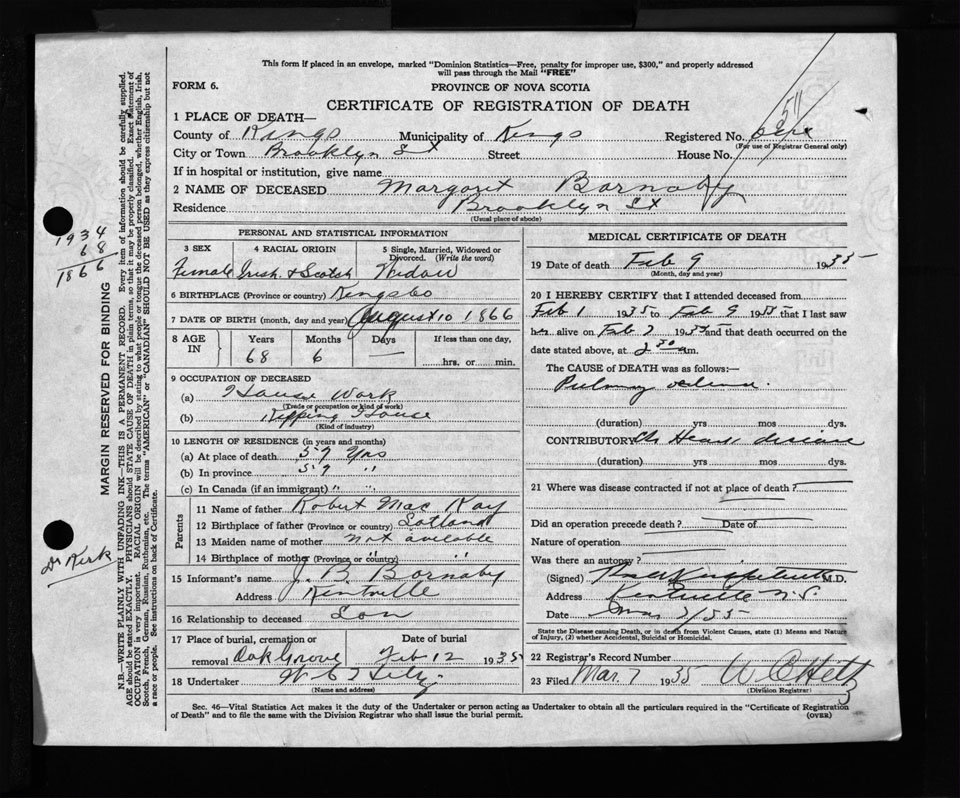 This form if placed in an envelope, marked "Dominion Statistics—Free, penalty for improper use, $300," and properly addressed
will pass through the Mail "FREE"
FORM 6.
PROVINCE OF NOVA SCOTIA
CERTIFICATE OF REGISTRATION OF DEATH
511
1 PLACE OF DEATH—
County of Kings Municipality of Kings Registered No.
(For use of Registrar General only)
City or Town Brooklyn St Street House No.
If in hospital or institution, give name
2 NAME OF DECEASED Margaret Barnaby
Residence Brooklyn St
(Usual place of abode)
PERSONAL AND STATISTICAL INFORMATION
3 SEX 4 RACIAL ORIGIN 5 Single, Married, Widowed or Divorced. (Write the word)
Female Irish & Scotch Widow
6 BIRTHPLACE (Province or country) Kings Co
7 DATE OF BIRTH (month, day and year) August 10 1866
8 AGE IN Years Months Days If less than one day,
68 6 — hrs. or min.
9 OCCUPATION OF DECEASED
(a) House Work
(Trade or occupation or kind of work)
(b) Keeping House
(Kind of industry)
10 LENGTH OF RESIDENCE (in years and months)
(a) At place of death 59 Yrs
(b) In province 59 "
(c) In Canada (if an immigrant) " "
Parents
11 Name of father Robert Mac Kay
12 Birthplace of father (Province or country) Scotland
13 Maiden name of mother not available
14 Birthplace of mother (Province or country) " "
15 Informant's name J. B. Barnaby
Address Kentville
16 Relationship to deceased Son
17 Place of burial, cremation or removal Oak Grove Date of burial Feb 12 1935
18 Undertaker
(Name and address)
MEDICAL CERTIFICATE OF DEATH
19 Date of death Feb 9 1935
(Month, day and year)
20 I HEREBY CERTIFY that I attended deceased from
Feb 1 1935 to Feb 9 1935 that I last saw
her alive on Feb 7 1935 and that death occurred on
date stated above, at 2 30 a m.
The CAUSE of DEATH was as follows:—
(duration) yrs mos dys.
CONTRIBUTORY Ch Heart disease
(duration) yrs mos dys.
21 Where was disease contracted if not at place of death?
Did an operation precede death? Date of
Nature of operation
Was there an autopsy?
(Signed) M.D.
Address Kentville N.S.
Date
State the Disease causing Death, or in death from Violent Causes, state (1) Means and Nature
of Injury, (2) whether Accidental, Suicidal or Homicidal.
22 Registrar's Record Number
23 Filed Mar. 7 1935
(Division Registrar)
Sec. 46—Vital Statistics Act makes it the duty of the Undertaker or person acting as Undertaker to obtain all the particulars required in the "Certificate of Registration
of Death" and to file the same with the Division Registrar who shall issue the burial permit.
(OVER)
1934
68
1866
Dr Kirk
MARGIN RESERVED FOR BINDING
N.B.—WRITE PLAINLY WITH UNFADING INK—THIS IS A PERMANENT RECORD. Every item of information should be carefully supplied.
AGE should be stated EXACTLY. PHYSICIANS should STATE CAUSE OF DEATH in plain terms, so that it may be properly classified. Exact statement of
OCCUPATION is very important. RACIAL ORIGIN will be described by stating to what people or tongue the deceased person belonged, whether English, Irish,
Scotch, French, German, Russian, Ruthenian, etc. The terms "AMERICAN" or "CANADIAN" SHOULD NOT BE USED as they express citizenship but not
a race or people. See instructions on back of Certificate.